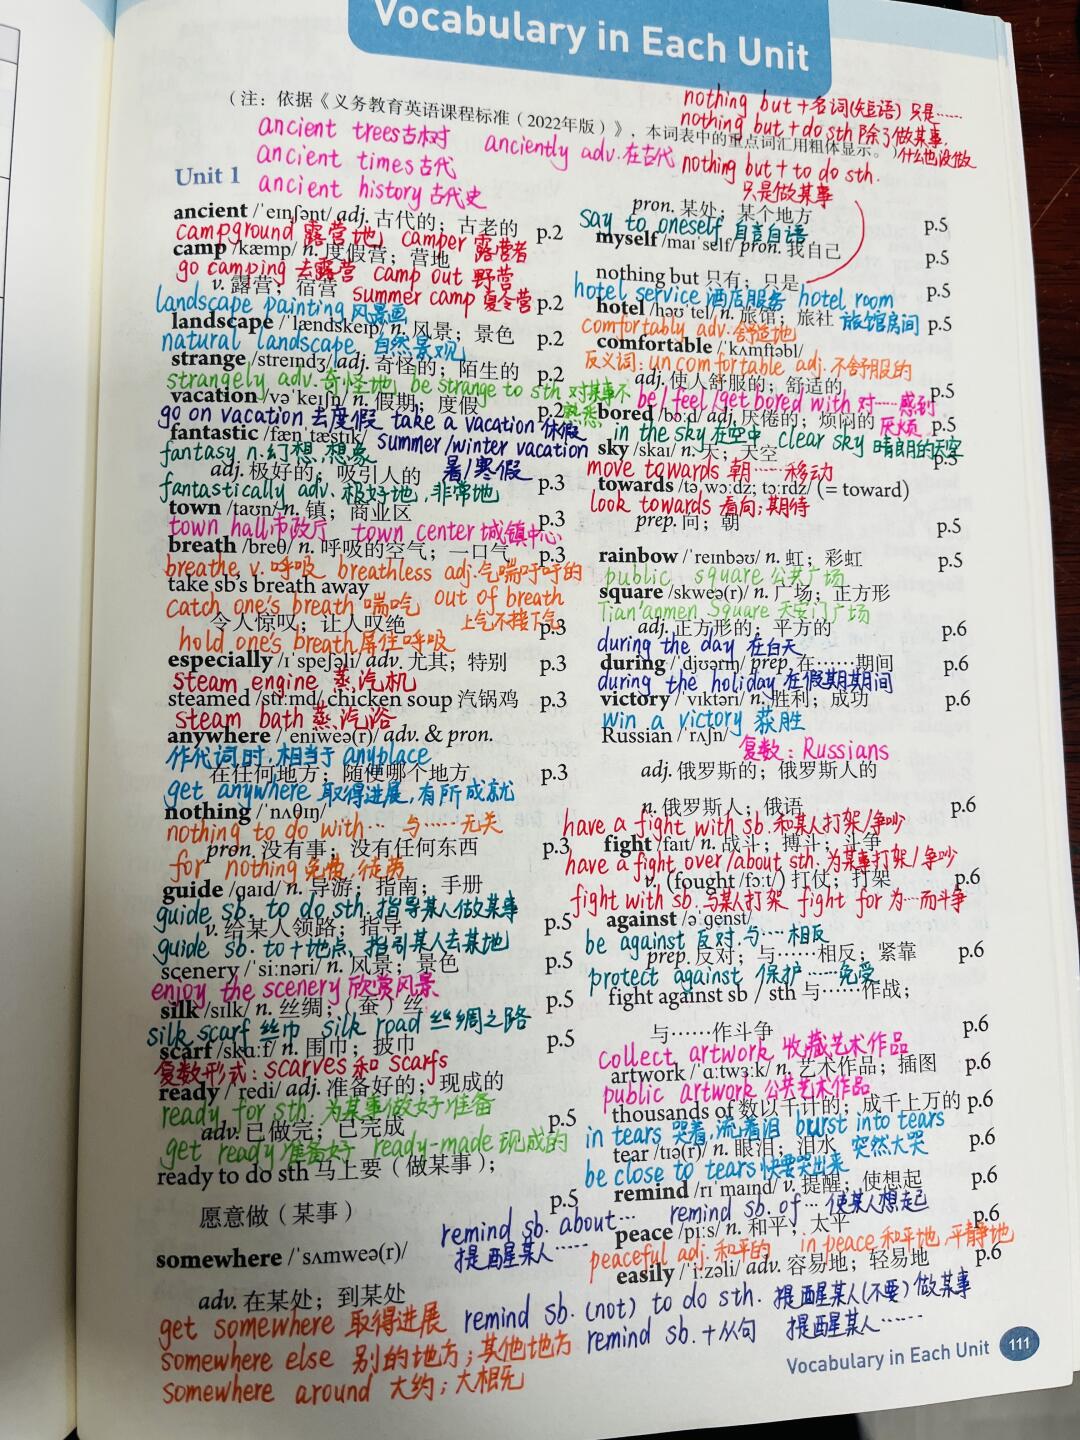 Vocabulary in Each Unit
（注：依据《义务教育英语课程标准（2022年版）》，本词表中的重点词汇用粗体显示。）
nothing but + 名词(短语) 只是……
nothing but + do sth 除了做某事,什么也没做
nothing but + to do sth.
只是做某事
ancient trees 古树 anciently adv. 在古代
ancient times 古代
ancient history 古代史
Unit 1
ancient /ˈeɪnʃənt/ adj. 古代的；古老的 p.2
campground 露营地 camper 露营者
camp /kæmp/ n. 度假营；营地
go camping 去露营 camp out 野营
v. 露营；宿营 p.2
summer camp 夏令营
landscape painting 风景画
landscape /ˈlændskeɪp/ n. 风景；景色 p.2
natural landscape 自然景观
strange /streɪndʒ/ adj. 奇怪的；陌生的 p.2
strangely adv. 奇怪地 be strange to sth 对某事不熟悉
vacation /vəˈkeɪʃn/ n. 假期；度假 p.2
go on vacation 去度假 take a vacation 休假
summer/winter vacation 暑/寒假
fantastic /fænˈtæstɪk/
fantasy n. 幻想,想象
adj. 极好的；吸引人的 p.3
fantastically adv. 极好地,非常地
town /taʊn/ n. 镇；商业区 p.3
town hall 市政厅 town center 城镇中心
breath /breθ/ n. 呼吸的空气；一口气 p.3
breathe v. 呼吸 breathless adj. 气喘吁吁的
take sb's breath away
catch one's breath 喘口气 out of breath 上气不接下气
令人惊叹；让人叹绝 p.3
hold one's breath 屏住呼吸
especially /ɪˈspeʃəli/ adv. 尤其；特别 p.3
steam engine 蒸汽机
steamed /stiːmd/ chicken soup 汽锅鸡 p.3
steam bath 蒸汽浴
anywhere /ˈeniweə(r)/ adv. & pron.
作代词时,相当于 anyplace
在任何地方；随便哪个地方 p.3
get anywhere 取得进展,有所成就
nothing /ˈnʌθɪŋ/
nothing to do with… 与……无关
pron. 没有事；没有任何东西 p.3
for nothing 免费,徒劳
guide /ɡaɪd/ n. 导游；指南；手册
guide sb. to do sth. 指导某人做某事
v. 给某人领路；指导 p.5
guide sb. to + 地点 指引某人去某地
scenery /ˈsiːnəri/ n. 风景；景色 p.5
enjoy the scenery 欣赏风景
silk /sɪlk/ n. 丝绸；（蚕）丝 p.5
silk scarf 丝巾 silk road 丝绸之路
scarf /skɑːf/ n. 围巾；披巾 p.5
复数形式: scarves 和 scarfs
ready /ˈredi/ adj. 准备好的；现成的
ready for sth. 为某事做好准备
adv. 已做完；已完成 p.5
get ready 准备好 ready-made 现成的
ready to do sth 马上要（做某事）；
愿意做（某事） p.5
somewhere /ˈsʌmweə(r)/
adv. 在某处；到某处
get somewhere 取得进展
somewhere else 别的地方；其他地方
somewhere around 大约；大概
pron. 某处；某个地方 p.5
say to oneself 自言自语
myself /maɪˈself/ pron. 我自己 p.5
nothing but 只有；只是 p.5
hotel service 酒店服务 hotel room 旅馆房间
hotel /həʊˈtel/ n. 旅馆；旅社 p.5
comfortably adv. 舒适地
comfortable /ˈkʌmftəbl/
反义词: uncomfortable adj. 不舒服的
adj. 使人舒服的；舒适的 p.5
be/feel/get bored with 对……感到厌烦
bored /bɔːd/ adj. 厌倦的；烦闷的 p.5
in the sky 在空中 clear sky 晴朗的天空
sky /skaɪ/ n. 天；天空 p.5
move towards 朝……移动
towards /təˈwɔːdz; tɔːrdz/ (= toward)
look towards 看向；期待
prep. 向；朝 p.5
rainbow /ˈreɪnbəʊ/ n. 虹；彩虹 p.5
public square 公共广场
square /skweə(r)/ n. 广场；正方形
Tian'anmen Square 天安门广场
adj. 正方形的；平方的 p.6
during the day 在白天
during /ˈdjʊərɪŋ/ prep. 在……期间 p.6
during the holiday 在假期期间
victory /ˈvɪktəri/ n. 胜利；成功 p.6
win a victory 获胜
Russian /ˈrʌʃn/
复数: Russians
adj. 俄罗斯的；俄罗斯人的
n. 俄罗斯人；俄语 p.6
have a fight with sb. 和某人打架/争吵
fight /faɪt/ n. 战斗；搏斗；斗争
have a fight over/about sth. 为某事打架/争吵
v. (fought /fɔːt/) 打仗；打架 p.6
fight with sb. 与某人打架 fight for 为…而斗争
against /əˈɡenst/
be against 反对,与……相反
prep. 反对；与……相反；紧靠 p.6
protect against 保护……免受
fight against sb / sth 与……作战；
与……作斗争 p.6
collect artwork 收藏艺术作品
artwork /ˈɑːtwɜːk/ n. 艺术作品；插图 p.6
public artwork 公共艺术作品
thousands of 数以千计的；成千上万的 p.6
in tears 哭着,流着泪 burst into tears 突然大哭
tear /tɪə(r)/ n. 眼泪；泪水 p.6
be close to tears 快要哭出来
remind /rɪˈmaɪnd/ v. 提醒；使想起 p.6
remind sb. about… 提醒某人…… remind sb. of… 使某人想起
peace /piːs/ n. 和平；太平 p.6
peaceful adj. 和平的 in peace 和平地,平静地
easily /ˈiːzəli/ adv. 容易地；轻易地 p.6
remind sb. (not) to do sth. 提醒某人(不要)做某事
remind sb. + 从句 提醒某人……
Vocabulary in Each Unit 111